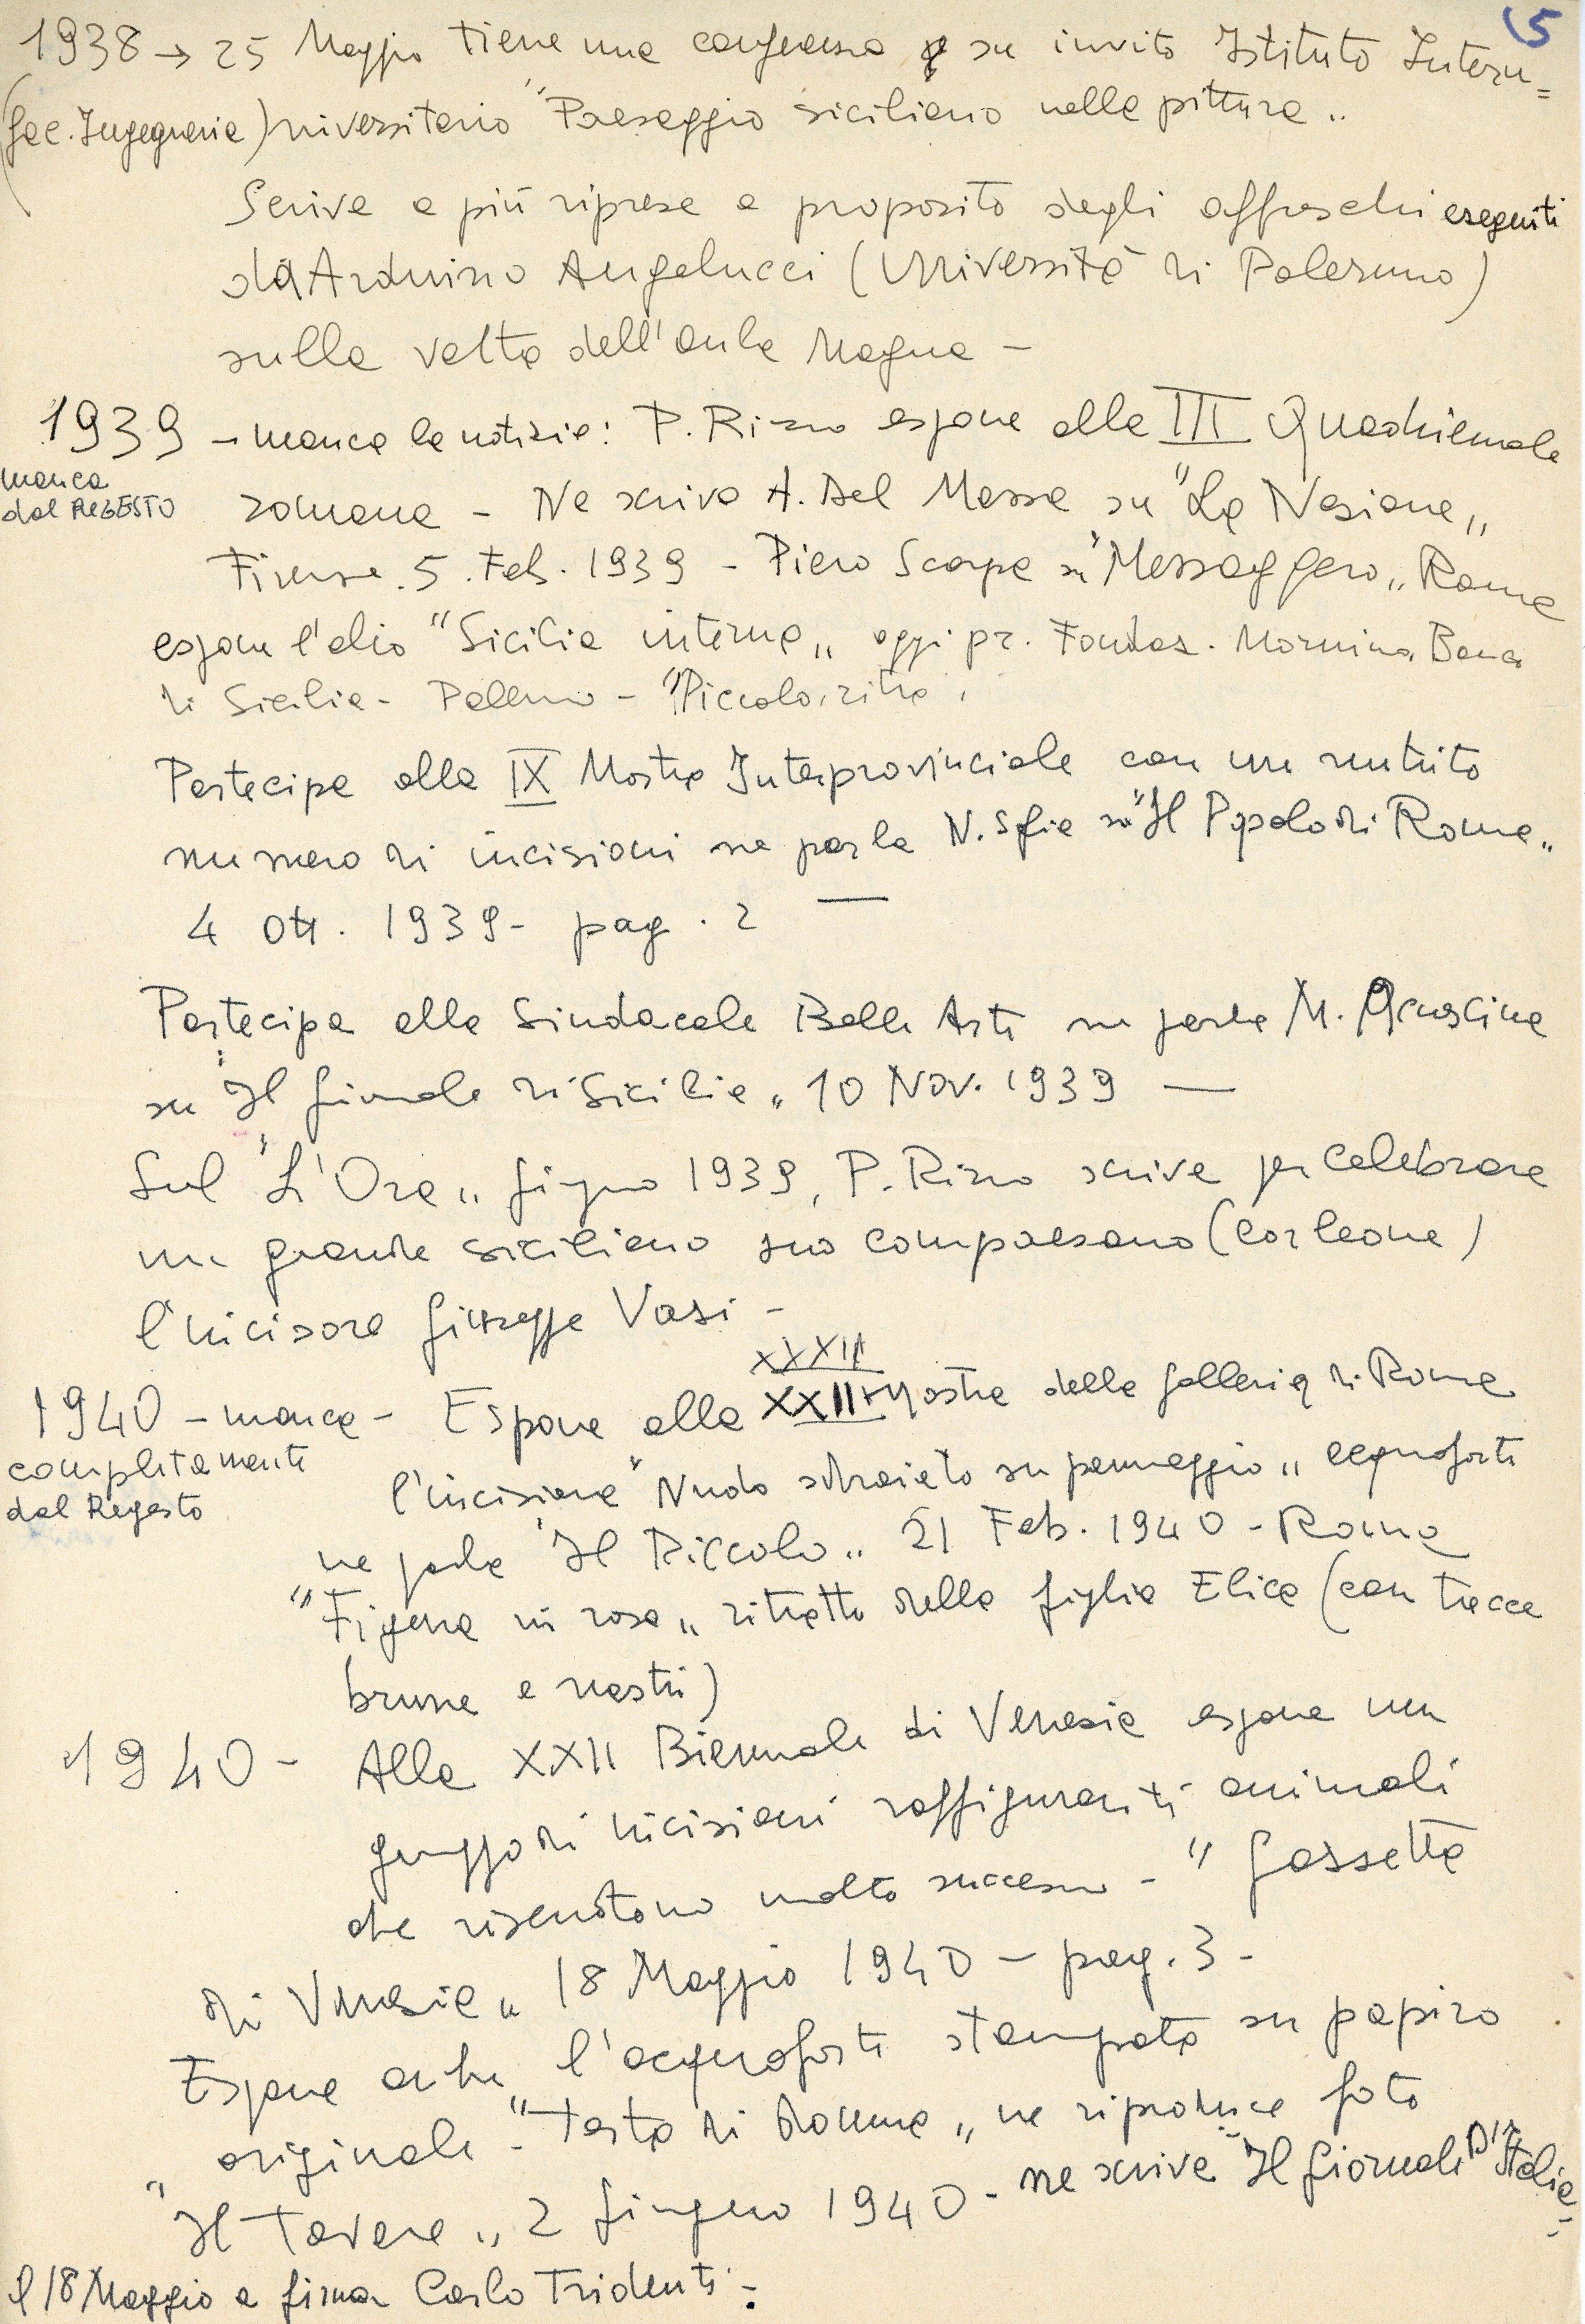 5
1938 → 25 Maggio tiene una conferenza su invito Istituto Intern=
(Fac. Ingegneria) universitario "Paesaggio siciliano nella pittura"
Scrive a più riprese a proposito degli affreschi eseguiti
da Arduino Angelucci (Università di Palermo)
sulla volta dell'aula Magna -
1939 - manca la notizia: P. Rizzo espone alla III Quadriennale
manca
dal REGESTO
romana - Ne scrive A. Del Massa su "La Nazione"
Firenze. 5. Feb. 1939 - Piero Scarpa su "Messaggero" Roma
espone l'olio "Sicilia interna" oggi pr. Fondaz. Mormino Banco
di Sicilia - Palermo -
Partecipa alla IX Mostra Interprovinciale con un nutrito
numero di incisioni ne parla N. Sofia su "Il Popolo di Roma"
4 Ott. 1939 - pag. 2 —
Partecipa alla Sindacale Belle Arti ne parla M.
su "Il Giornale di Sicilia" 10 Nov. 1939 —
Sul "L'Ora" giugno 1939, P. Rizzo scrive per celebrare
un grande siciliano suo compaesano (Corleone)
l'incisore Giuseppe Vasi -
XXXII
1940 - manca - Espone alla XXII Mostra della Galleria di Roma
completamente
dal Regesto
l'incisione "Nudo sdraiato su panneggio" acquaforte
ne parla "Il Piccolo" 21 Feb. 1940 - Roma
"Figura in rosa" ritratto della figlia Elica (con trecce
brune e nastri)
1940 - Alla XXII Biennale di Venezia espone un
gruppo di incisioni raffiguranti animali
che riscuotono molto successo - "Gazzetta
di Venezia" 18 Maggio 1940 - pag. 3 -
Espone anche l'acquaforte stampata su papiro
originale - "Testa di donna" ne riproduce foto
"Il Tevere" 2 giugno 1940 - ne scrive "Il Giornale D'Italia"
il 18 Maggio a firma Carlo Tridenti -